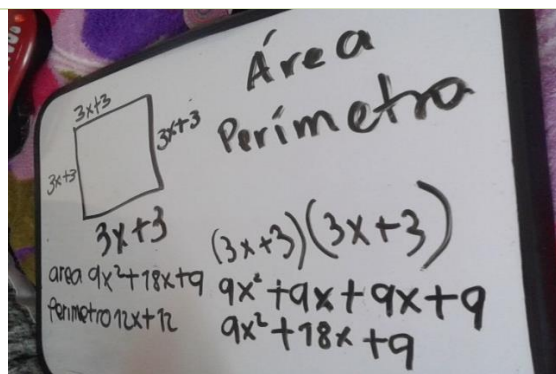 Área
Perímetro
3x+3
3x+3
3x+3
3x+3
(3x+3)(3x+3)
area 9x²+18x+9
9x²+9x+9x+9
Perimetro 12x+12
9x²+18x+9